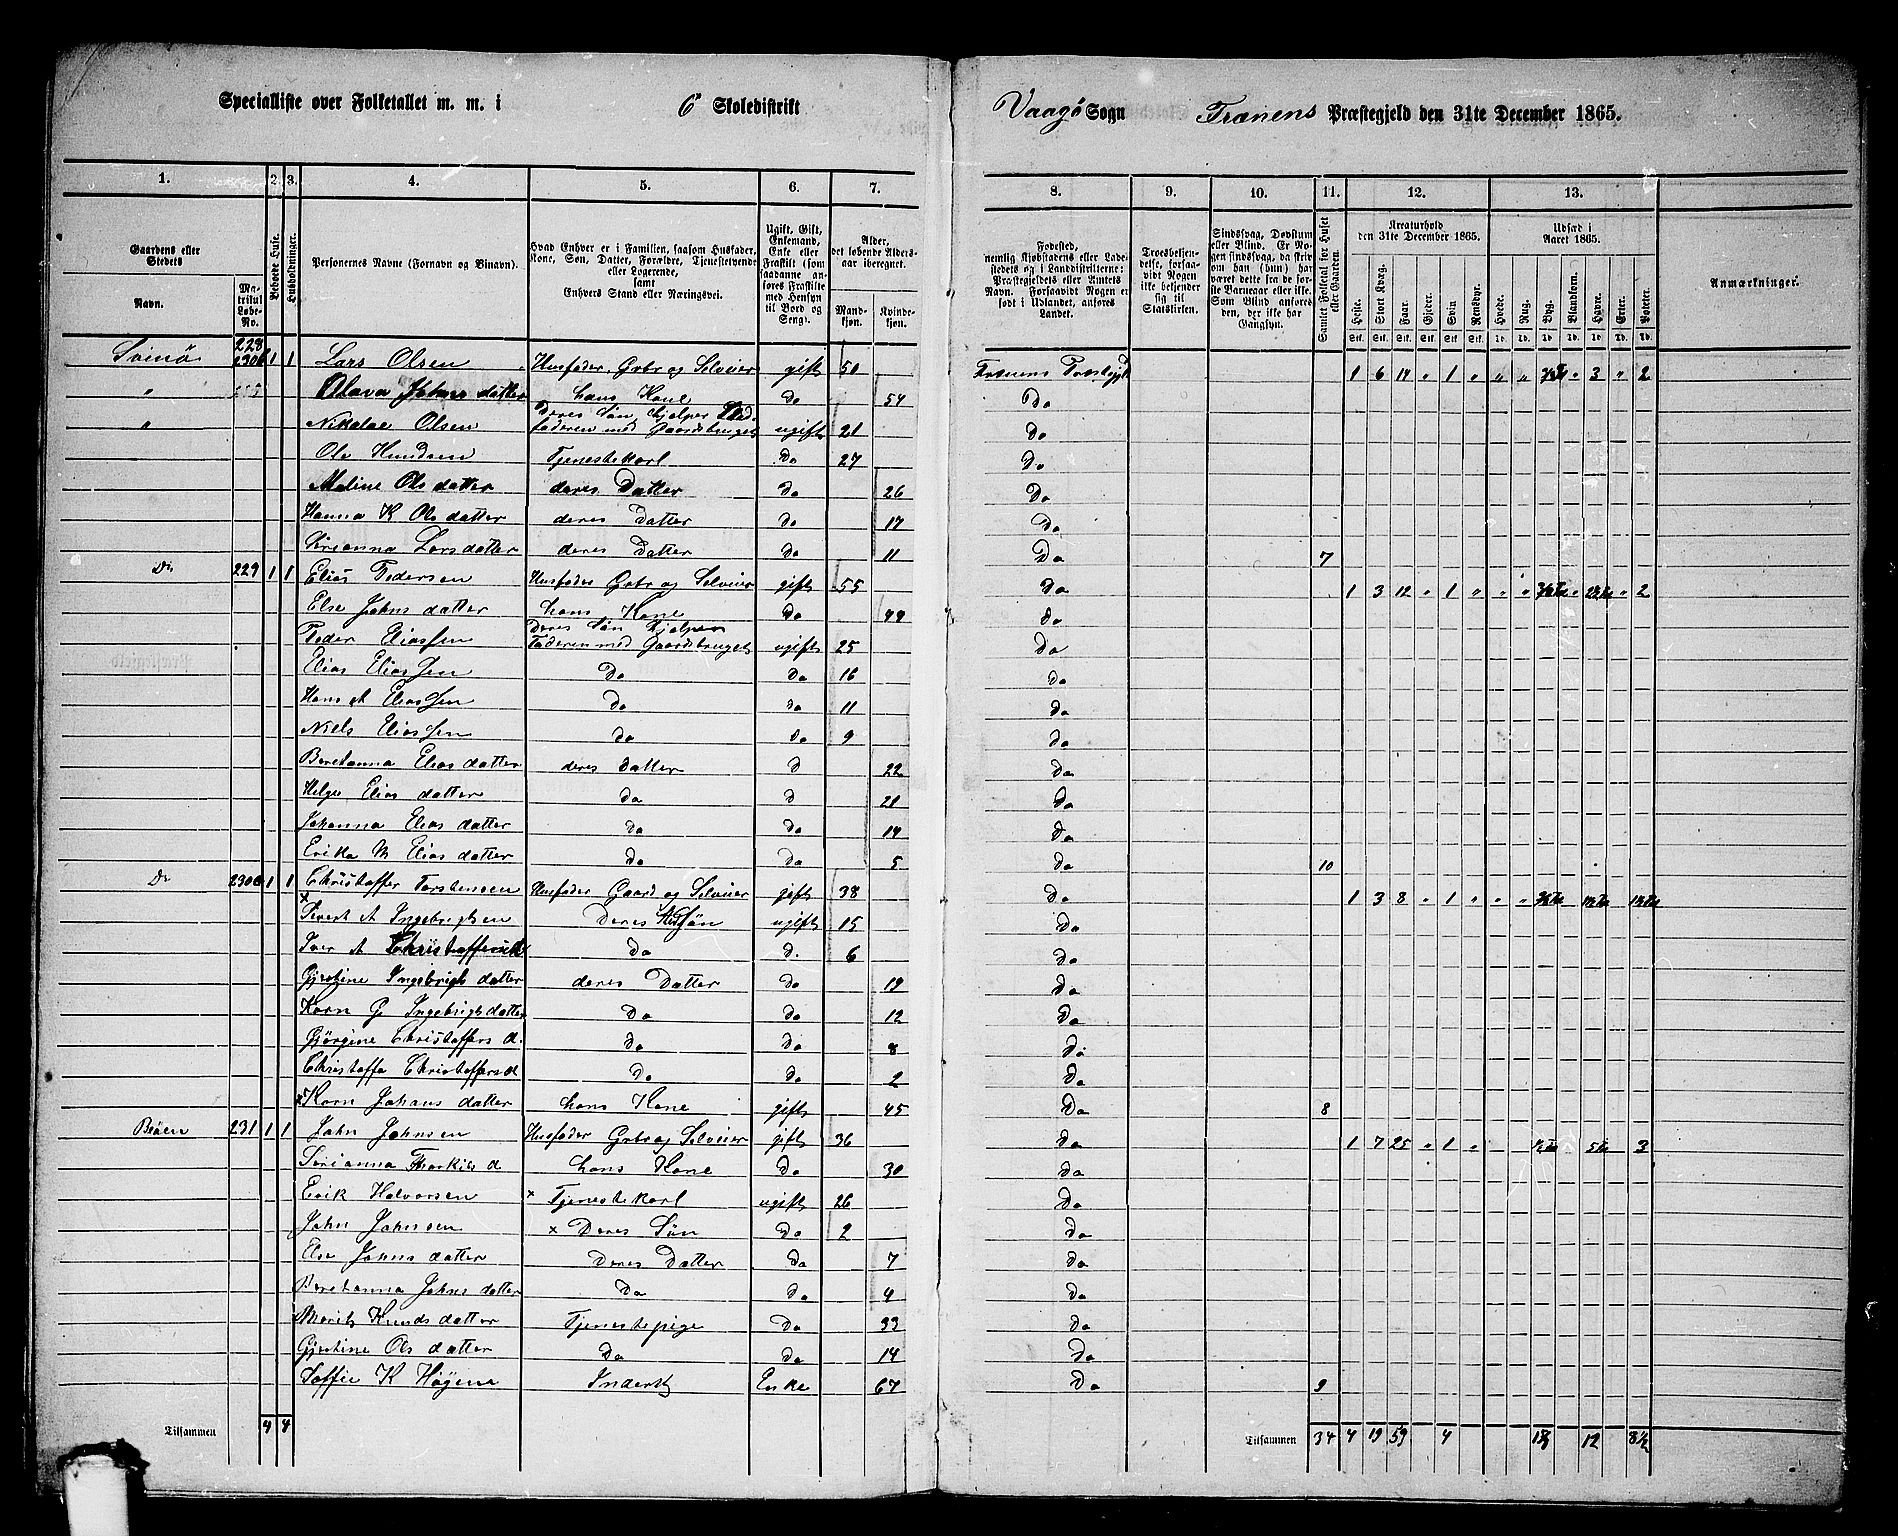 Specialliste over Folketallet m. m. i 6 Skoledistrikt Vaagø Sogn Frænens Præstegjeld den 31te December 1865.
1. 2. 3. 4. 5. 6. 7. 8. 9. 10. 11. 12. 13.
Gaardens eller Stedets
Navn.
Matrikul Løbe-No.
Beboede Huse.
Husholdninger.
Personernes Navne (Fornavn og Binavn).
Hvad Enhver er i Familien, saasom Husfader, Kone, Søn, Datter, Forældre, Tjenestetyende eller Logerende, samt Enhvers Stand eller Næringsvei.
Ugift, Gift, Enkemand, Enke eller Fraskilt (som saadanne anføres Fraskilte med Hensyn til Bord og Seng).
Alder, det løbende Aldersaar iberegnet.
Mandkjøn.
Kvindekjøn.
Fødested, nemlig Kjøbstadens eller Ladestedets og i Landdistrikterne: Præstegjeldets eller Amtets Navn. Forsaavidt Nogen er født i Udlandet, anføres Landet.
Troesbekjendelse, forsaavidt Nogen ikke bekjender sig til Statskirken.
Sindssvag, Døvstum eller Blind. Er Nogen sindssvag, da skrives om han (hun) har været dette fra de første Barneaar eller ikke. Som Blind anføres den, der ikke har Gangsyn.
Samlet Folketal for Huset eller Gaarden.
Kreaturhold den 31te December 1865.
Heste. Stort Kvæg. Faar. Gjeder. Svin. Rensdyr.
Udsæd i Aaret 1865.
Hvede. Rug. Byg. Blandkorn. Havre. Erter. Poteter.
Anmærkninger.
Svinø 228 230b 1 1 Lars Olsen Husfader Grbr og Selveier gift 50 Frænens Præstegjd 1 6 14 " 1 " " " " 3 " 2
" Olava Johns datter hans Kone Do 54 Do
" Nikolae Olsen Deres Søn, hjelper Faderen med Gaardsbruget ugift 21 Do
Ole Knudsen Tjenestekarl Do 27 Do
Maline Ols datter deres Datter Do 26 Do
Hanna K Ols datter deres datter Do 17 Do
Sørianna Lars datter deres Datter Do 11 Do 7
Do 229 1 1 Elias Pedersen Husfader Grbr og Selveier gift 55 Do 1 3 12 " 1 " " " " " 2
Else Johns datter hans Kone Do 49 Do
Peder Eliassen Deres Søn Hjelper Faderen med Gaardsbruget ugift 25 Do
Elias Eliassen Do Do 16 Do
Hans A Eliassen Do Do 11 Do
Niels Eliassen Do Do 9 Do
Beretanna Elias datter deres datter D 22 Do
Helge Elias datter Do D 21 Do
Johanna Elias datter Do Do 14 Do
Erika M Elias datter Do Do 5 Do 10
Do 230a 1 1 Christoffer Torstensen Husfader Gaard og Selveier gift 38 Do 1 3 8 " 1 "
Sivert A Ingebrigtsen Deres Søn ugift 15 Do
Iver A Do D. 6 Do
Gjertine Ingebrigts datter deres Datter Do 19 Do
Karn G Ingebrigts datter Do Do 12 Do
Gjørgine Christoffers d. Do Do 8 Do
Christoffa Christoffers d Do Do 2 Do
Karn Johans datter hans Kone gift 45 Do 8
Bøen 231 1 1 John Johnsen Husfader Grbr og Selveier gift 36 Do 1 7 25 " 1 " 3
Sørianna Thorkils d hans Kone Do 30 Do
Erik Halvorsen Tjenestekarl ugift 26 Do
John Johnsen Deres Søn Do 2 Do
Else Johns datter Deres Datter Do 7 Do
Beretanna Johns datter Do Do 4 Do
Marit Knuds datter Tjenestepige Do 33 Do
Gjertine Ols datter Do Do 14 Do
Soffie K Høyem Enke 67 Do 9
Tilsammen 4 4 Tilsammen 34 4 19 59 4 12 8½